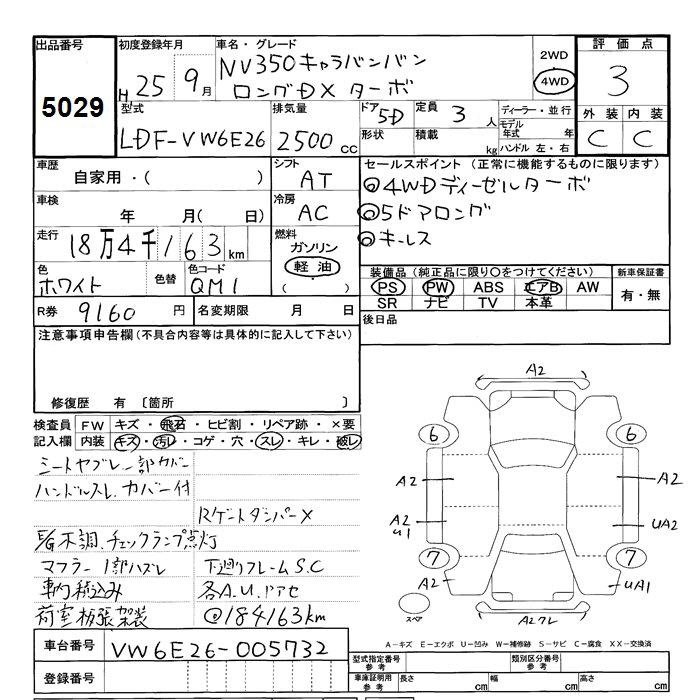 出品番号 初度登録年月 車名・グレード 2WD 評価点
5029 H25 9月 NV350キャラバンバン 4WD 3
ロングDX ターボ
型式 排気量 ドア 5D 定員 3人 ディーラー・並行 外装 内装
LDF-VW6E26 2500cc 形状 積載 kg モデル年式 年 C C
ハンドル 左・右
車歴 シフト セールスポイント(正常に機能するものに限ります)
自家用・( ) AT ◎4WDディーゼルターボ
車検 冷房 ◎5ドアロング
年 月( 日) AC ◎キーレス
走行 燃料
18万4千163km ガソリン
軽油
( ・ )
色 色替 色コード 装備品(純正品に限り○をつけてください) 新車保証書
ホワイト QM1 PS PW ABS エアB AW 有・無
SR ナビ TV 本革
R券 9160円 名変期限 月 日 後日品
注意事項申告欄(不具合内容等は具体的に記入して下さい)
修復歴 有〔箇所 〕
検査員 FW キズ・飛石・ヒビ割・リペア跡・×要
記入欄 内装 キズ・汚レ・コゲ・穴・スレ・キレ・破レ
シートヤブレ一部カバー
ハンドルスレ.カバー付
RゲートダンパーX
E/G不調.チェックランプ点灯
マフラー1部ハズレ 下廻りフレームS.C
積込み 各A.U.ドアセ
荷室板張架装 ◎184163km
A2
6 6
A2 A2
A2 UA2
U1
7 7
A2 UA1
スペア A2クレ
A-キズ E-エクボ U-凹み W-補修跡 S-サビ C-腐食 XX-交換済
車台番号 VW6E26-005732
型式指定番号 参考 類別区分番号 参考
登録番号 車庫証明用 参考 長さ cm 幅 cm 高さ cm